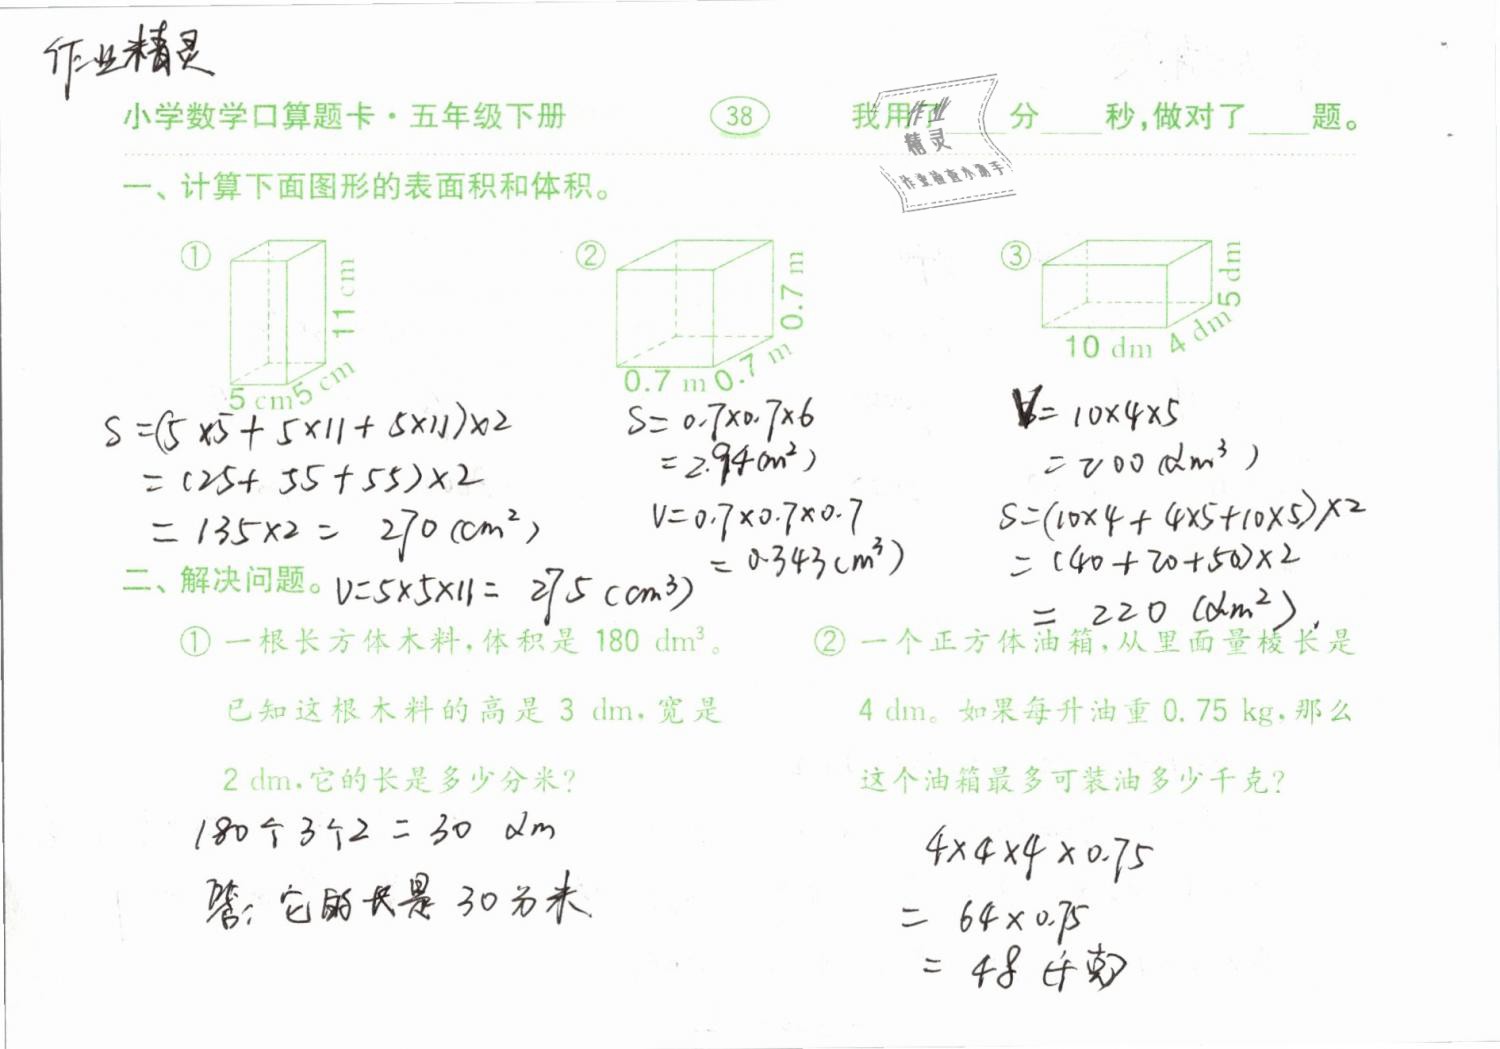 作业精灵
小学数学口算题卡·五年级下册 38 我用了____分____秒,做对了____题。
作业
精灵
作业检查小助手
一、计算下面图形的表面积和体积。
① ② ③
11 cm
5 cm 5 cm
0.7 m
0.7 m 0.7 m
5 dm
10 dm 4 dm
S=(5×5+5×11+5×11)×2
=(25+55+55)×2
=135×2= 270(cm²)
V=5×5×11= 275(cm³)
S=0.7×0.7×6
=2.94(m²)
V=0.7×0.7×0.7
=0.343(m³)
V=10×4×5
=200(dm³)
S=(10×4+4×5+10×5)×2
=(40+20+50)×2
=220(dm²).
二、解决问题。
①一根长方体木料,体积是 180 dm³。
已知这根木料的高是 3 dm,宽是
2 dm,它的长是多少分米?
180÷3÷2=30 dm
答:它的长是30分米
②一个正方体油箱,从里面量棱长是
4 dm。如果每升油重 0.75 kg,那么
这个油箱最多可装油多少千克?
4×4×4×0.75
=64×0.75
=48(千克)